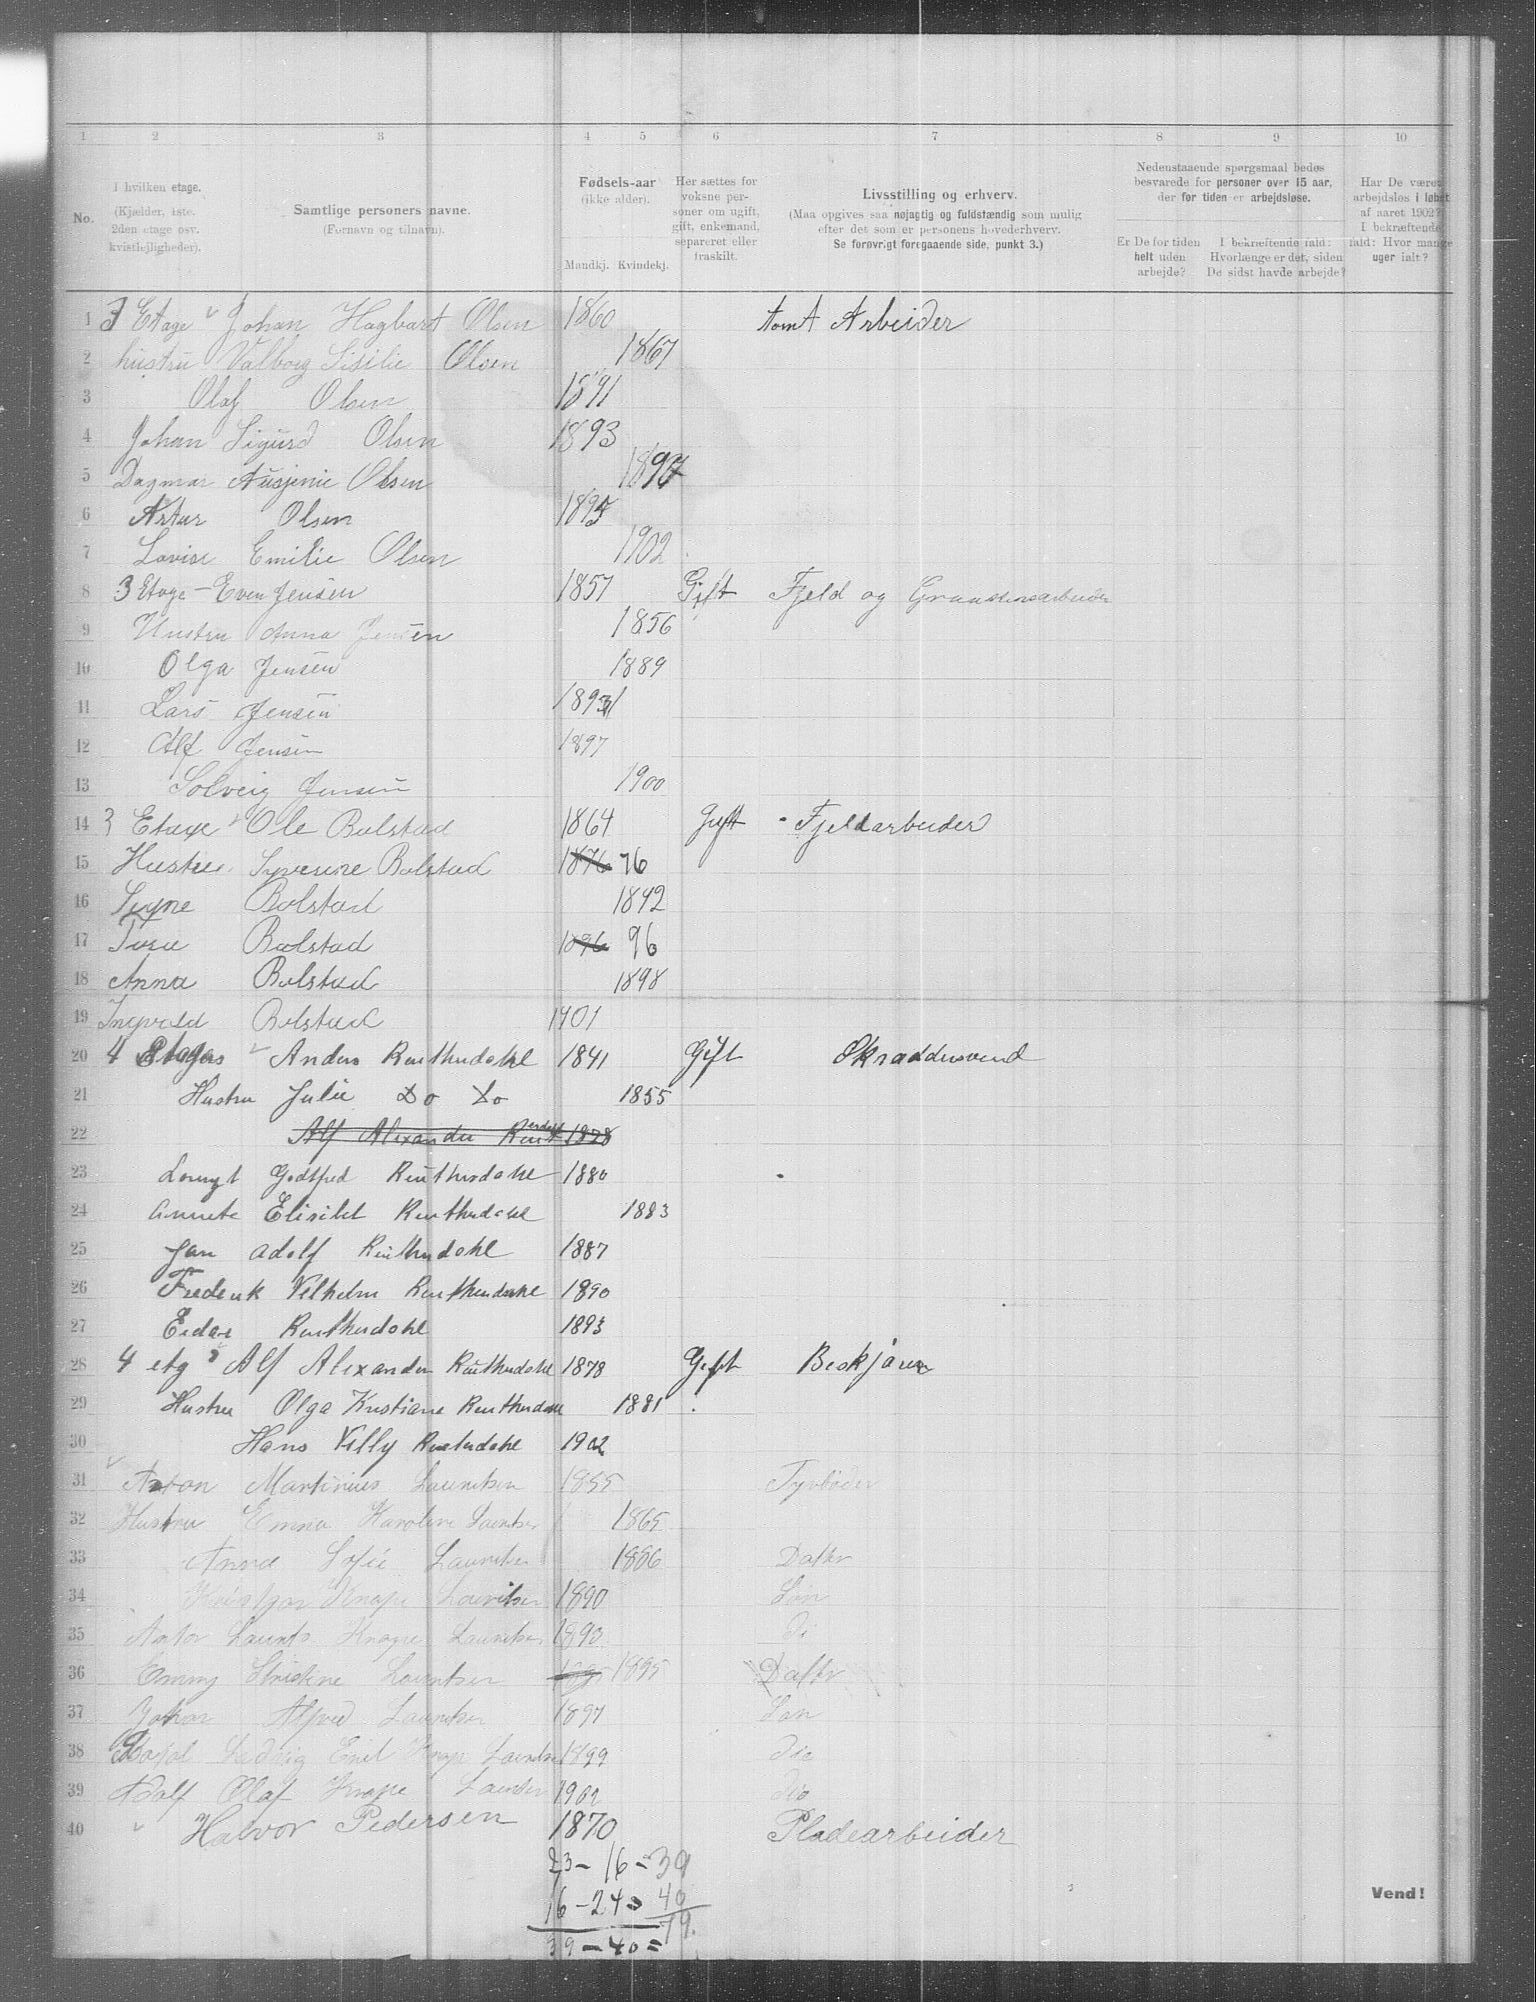 1 2 3 4 5 6 7 8 9 10
No.
I hvilken etage. (Kjælder, 1ste. 2den etage osv. kvistlejligheder).
Samtlige personers navne. (Fornavn og tilnavn).
Fødsels-aar (ikke alder). Mandkj. Kvindekj.
Her sættes for voksne personer om ugift, gift, enkemand, separeret eller fraskilt.
Livsstilling og erhverv. (Maa opgives saa nøjagtig og fuldstændig som mulig efter det som er personens hovederhverv. Se forøvrigt foregaaende side, punkt 3.)
Nedenstaaende spørgsmaal bedes besvarede for personer over 15 aar, der for tiden er arbejdsløse.
Er De for tiden helt uden arbejde?
I bekræftende fald: Hvorlænge er det, siden De sidst havde arbejde?
Har De været arbejdsløs i løbet af aaret 1902? I bekræftende fald: Hvor mange uger ialt?
1 3 Etage Johan Hagbart Olsen 1860 Tomt Arbeider
2 hustru Valborg Sisilie Olsen 1867
3 Olaf Olsen 1891
4 Johan Sigurd Olsen 1893
5 Dagmar Ausjenie Olsen 1897
6 Artur Olsen 1895
7 Lovise Emilie Olsen 1902
8 3 Etage - Even Jensen 1857 Gift Fjeld og
9 Hustru Anna Jensen 1856
10 Olga Jensen 1889
11 Lars Jensen
12 Alf Jensen 1897
13 Solveig Jensen 1900
14 3 Etage Ole Bolstad 1864 Gift Fjeldarbeider
15 Hustru Syverine Bolstad 1876 76
16 Signe Bolstad 1892
17 Tora Bolstad 1896 96
18 Anna Bolstad 1898
19 Ingvald Bolstad 1901
20 4 Etage Anders Reutherdahl 1841 Gift Skraddersvend
21 Hustru Julie Do Do 1855
22 Alf Alexander 1878
23 Godtfred Reutherdahl 1880
24 Annete Elisibet Reutherdahl 1883
25 Jan Adolf Reutherdahl 1887
26 Frederik Vilhelm Reutherdahl 1890
27 Eidar Reutherdahl 1893
28 4 etg Alf Alexander Reutherdahl 1878 Gift Beskjæren
29 Hustru Olga Kristiane Reutherdahl 1881
30 Hans Villy Reutherdahl 1902
31 Anton Martinius Lauritsen 1855 Fyrbøder
32 Hustru Emma Karoline Lauritsen 1865
33 Anna Sofie Lauritsen 1886 Datter
34 Knape Lauritsen 1890 Søn
35 Anton Laurits Knape Lauritsen 1893 do
36 Emmy Kristine Lauritsen 1895 1895 Datter
37 Johan Alfred Lauritsen 1897 Søn
38 Ludvig Emil Knape Lauritsen 1899 dio
39 Adolf Olaf Knape Lauritsen 1902 dio
40 Halvor Pedersen 1870 Pladearbeider
23 - 16 = 39
16 - 24 = 40
79.
39 - 40 =
Vend!